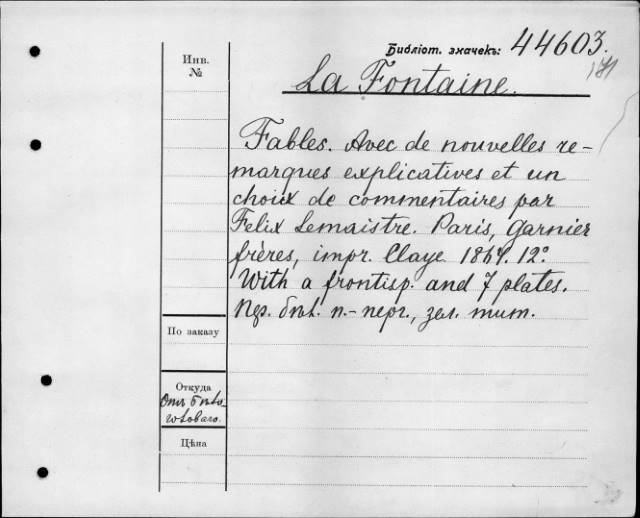 Библіот. значекъ: 44603.
Инв.
№
La Fontaine.
Fables. Avec de nouvelles re-
marques explicatives et un
choix de commentaires par
Felix Lemaistre. Paris, Garnier
frères, impr. Claye 1864. 12°
With a frontisp. and 7 plates.
Пер. бѣл. п.-перг., зел. тит.
По заказу
Откуда
Цѣна